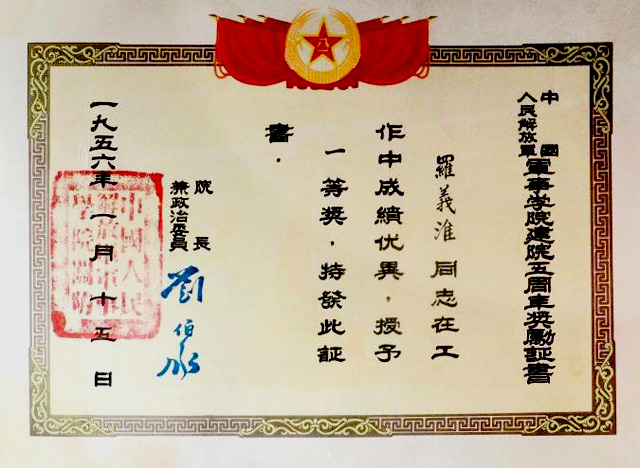 中國
人民解放軍
軍事学院建院五周年奖勵証書
羅義淮 同志在工
作中成績优異，授予
一等奖，特發此証
書．
院長
兼政治委員
劉伯承
一九五六年一月十五日
中國人民
學院關防